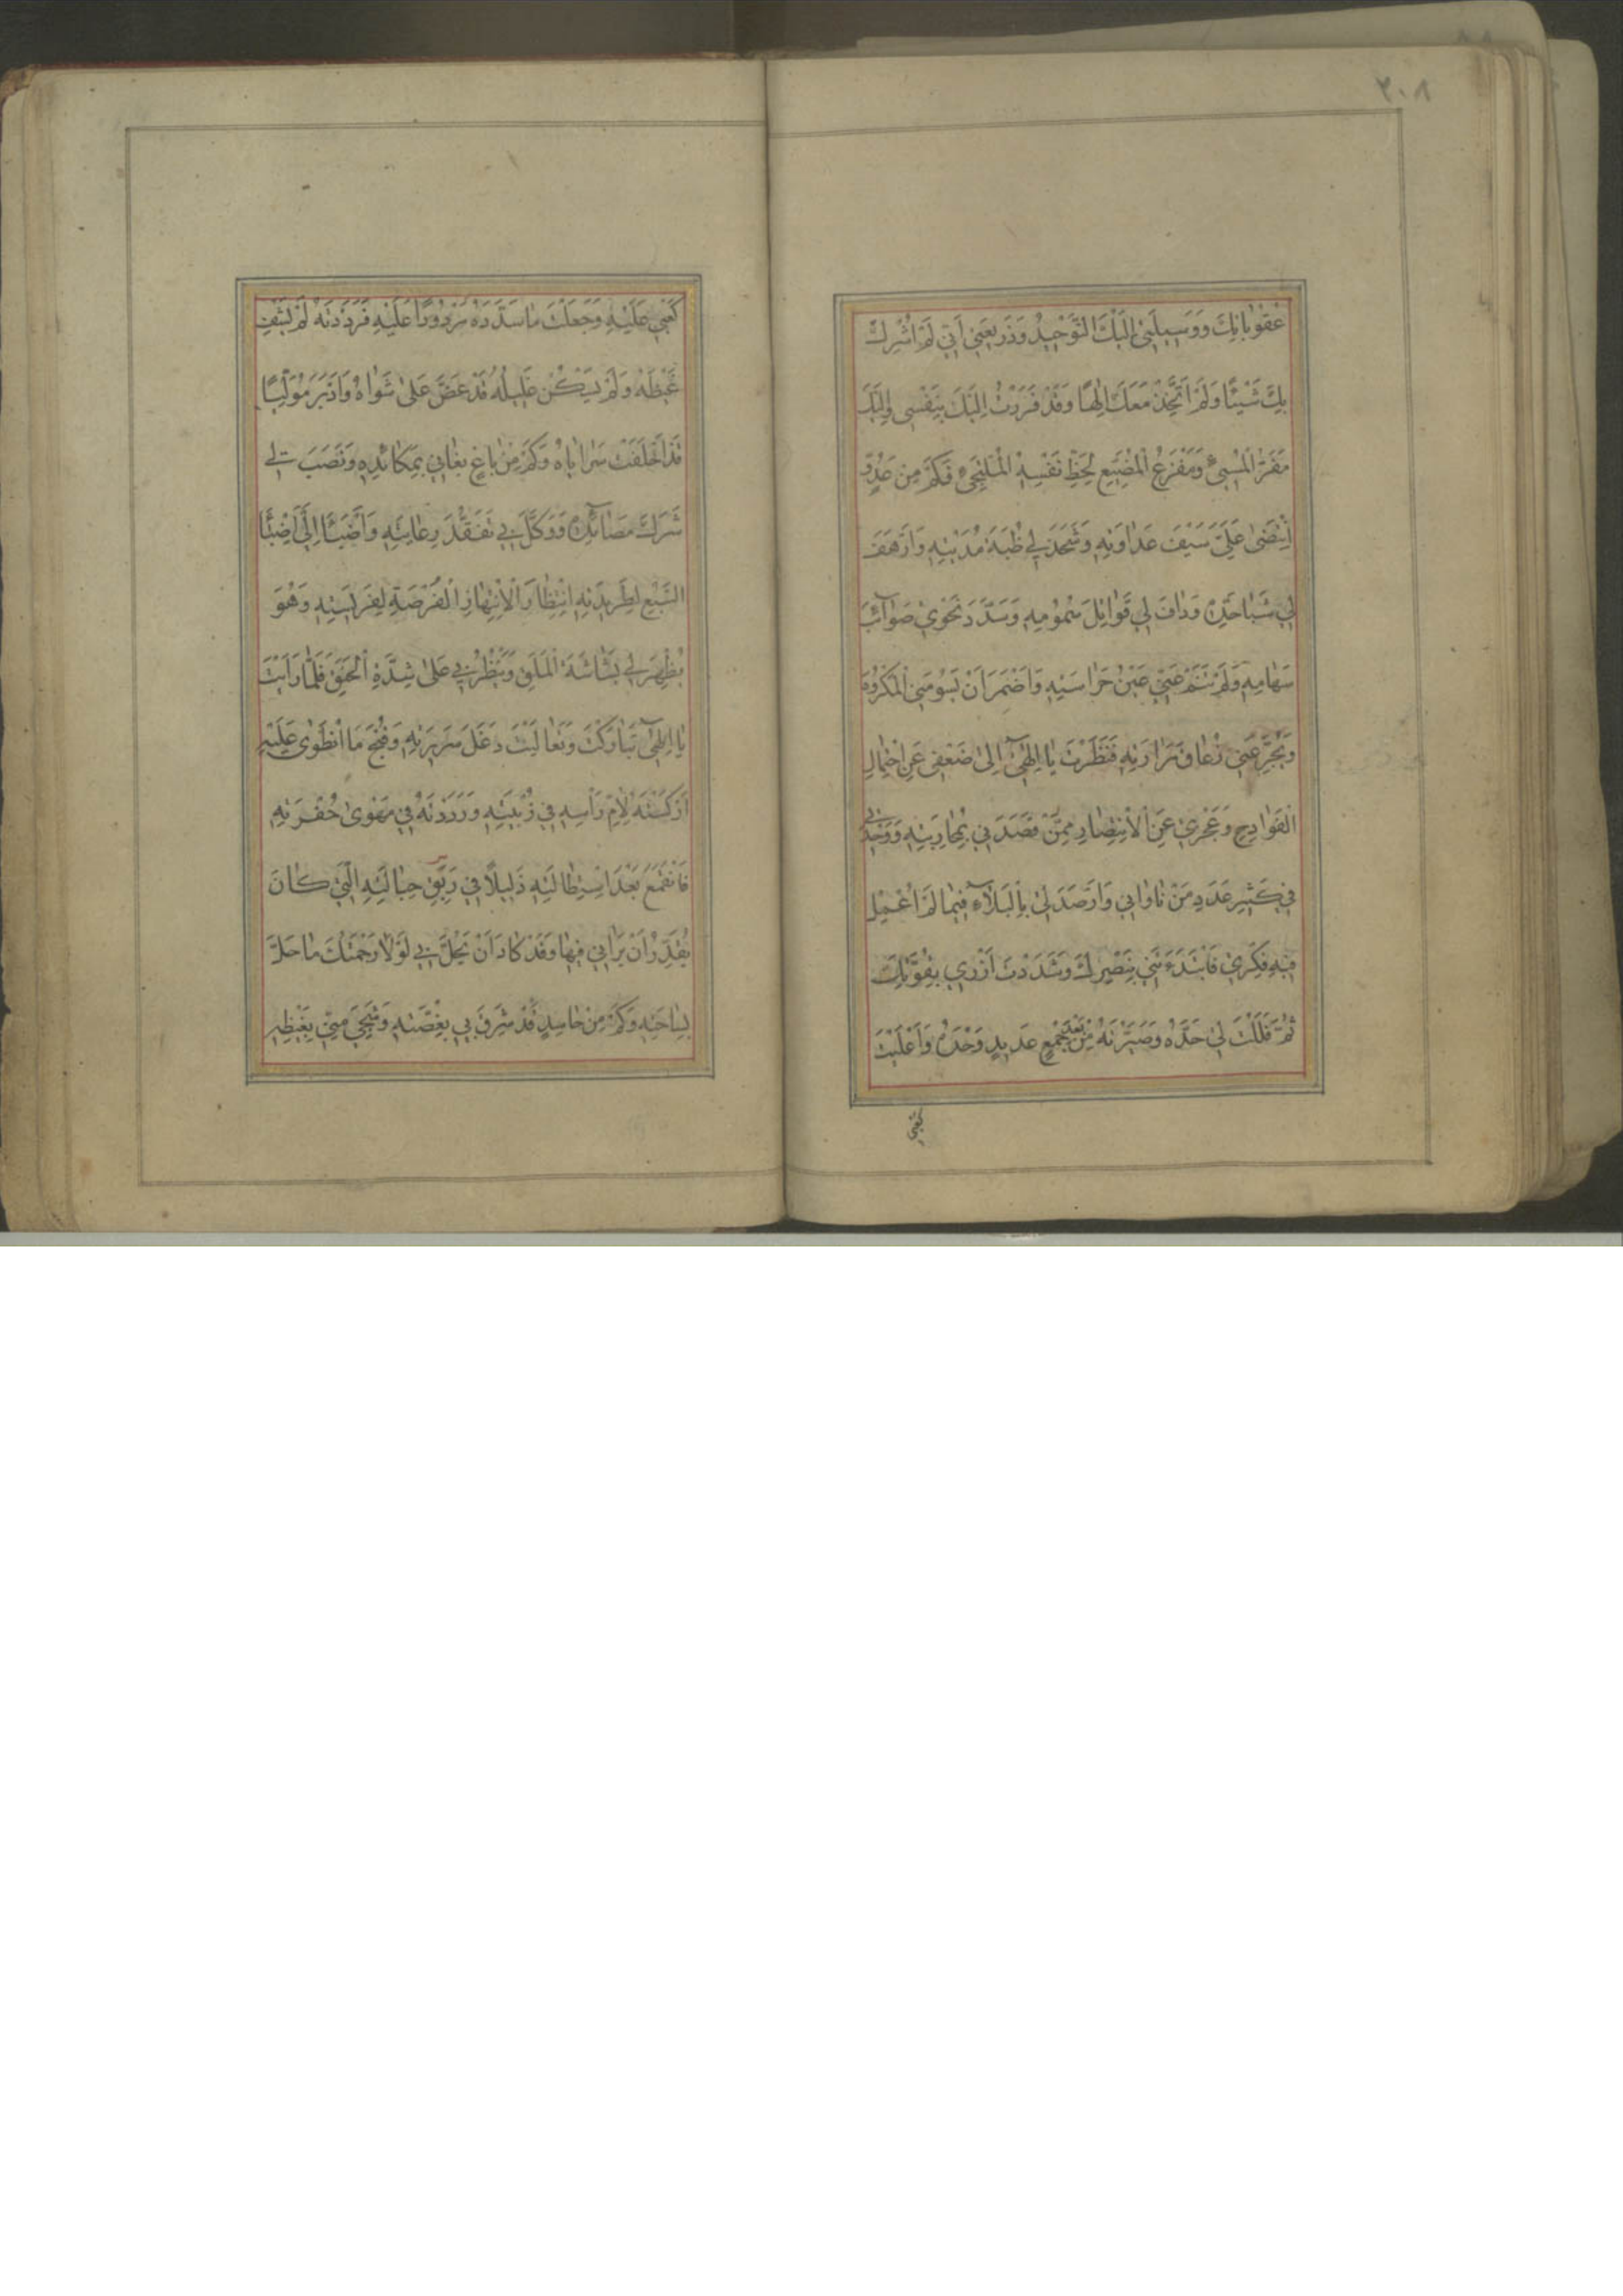 ٢٠٨
عُقُوبَاتِكَ وَوَسِيلَتِي إِلَيْكَ التَّوْحِيدُ وَذَرِيعَتِي أَنِّي لَمْ أُشْرِكْ
بِكَ شَيْئًا وَلَمْ أَتَّخِذْ مَعَكَ إِلٰهًا وَقَدْ فَرَرْتُ إِلَيْكَ بِنَفْسِي وَإِلَيْكَ
مَفَرُّ الْمُسِيءِ وَمَفْزَعُ الْمُضَيِّعِ لِحَظِّ نَفْسِهِ الْمُلْتَجِئِ فَكَمْ مِنْ عَدُوٍّ
انْتَضَى عَلَيَّ سَيْفَ عَدَاوَتِهِ وَشَحَذَ لِي ظُبَةَ مُدْيَتِهِ وَأَرْهَفَ
لِي شَبَا حَدِّهِ وَدَافَ لِي قَوَاتِلَ سُمُومِهِ وَسَدَّدَ نَحْوِي صَوَآئِبَ
سِهَامِهِ وَلَمْ تَنَمْ عَنِّي عَيْنُ حَرَاسَتِهِ وَأَضْمَرَ أَنْ يَسُومَنِي الْمَكْرُوهَ
وَيُجَرِّعَنِي زُعَاقَ مَرَارَتِهِ فَنَظَرْتَ يَا إِلٰهِي إِلَى ضَعْفِي عَنِ احْتِمَالِ
الْفَوَادِحِ وَعَجْزِي عَنِ الْاِنْتِصَارِ مِمَّنْ قَصَدَنِي بِمُحَارَبَتِهِ وَوَحْدَتِي
فِي كَثِيرِ عَدَدِ مَنْ نَاوَانِي وَأَرْصَدَ لِي بِالْبَلَآءِ فِيمَا لَمْ أُعْمِلْ
فِيهِ فِكْرِي فَابْتَدَءْتَنِي بِنَصْرِكَ وَشَدَدْتَ أَزْرِي بِقُوَّتِكَ
ثُمَّ فَلَلْتَ لِي حَدَّهُ وَصَيَّرْتَهُ مِنْ بَعْدِ جَمْعٍ عَدِيدٍ وَحْدَهُ وَأَعْلَيْتَ
كَعْبِي
كَعْبِي عَلَيْهِ وَجَعَلْتَ مَا سَدَّدَهُ مَرْدُودًا عَلَيْهِ فَرَدَدْتَهُ لَمْ يَشْفِ
غَيْظَهُ وَلَمْ يَسْكُنْ غَلِيلُهُ قَدْ عَضَّ عَلَى شَوَاهُ وَأَدْبَرَ مُوَلِّيًا
قَدْ أَخْلَفَتْ سَرَايَاهُ وَكَمْ مِنْ بَاغٍ بَغَانِي بِمَكَائِدِهِ وَنَصَبَ لِي
شَرَكَ مَصَائِدِهِ وَوَكَّلَ بِي تَفَقُّدَ رِعَايَتِهِ وَأَضْبَأَ إِلَيَّ إِضْبَاءَ
السَّبُعِ لِطَرِيدَتِهِ انْتِظَارًا لِانْتِهَازِ الْفُرْصَةِ لِفَرِيسَتِهِ وَهُوَ
يُظْهِرُ لِي بَشَاشَةَ الْمَلَقِ وَيَنْظُرُنِي عَلَى شِدَّةِ الْحَنَقِ فَلَمَّا رَأَيْتَ
يَا إِلٰهِي تَبَارَكْتَ وَتَعَالَيْتَ دَغَلَ سَرِيرَتِهِ وَقُبْحَ مَا انْطَوَى عَلَيْهِ
أَرْكَسْتَهُ لِأُمِّ رَأْسِهِ فِي زُبْيَتِهِ وَرَدَدْتَهُ فِي مَهْوَى حُفْرَتِهِ
فَانْقَمَعَ بَعْدَ اسْتِطَالَتِهِ ذَلِيلًا فِي رِبَقِ حِبَالَتِهِ الَّتِي كَانَ
يُقَدِّرُ أَنْ يَرَانِي فِيهَا وَقَدْ كَادَ أَنْ يَحُلَّ بِي لَوْلَا رَحْمَتُكَ مَا حَلَّ
بِسَاحَتِهِ وَكَمْ مِنْ حَاسِدٍ قَدْ شَرِقَ بِي بِغُصَّتِهِ وَشَجِيَ مِنِّي بِغَيْظِهِ